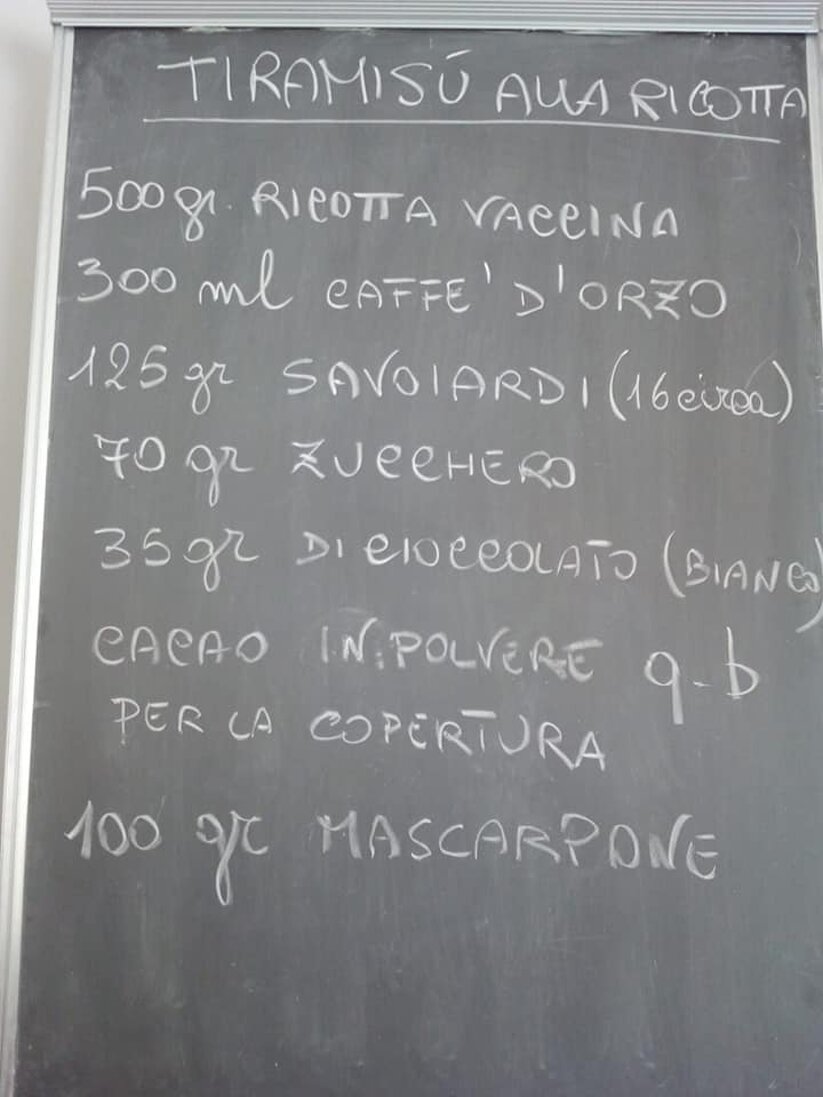 TIRAMISÚ ALLA RICOTTA
500 gr. RICOTTA VACCINA
300 ml CAFFE' D'ORZO
125 gr SAVOIARDI (16 circa)
70 gr ZUCCHERO
35 gr DI CIOCCOLATO (BIANCO)
CACAO IN POLVERE q-b
PER LA COPERTURA
100 gr MASCARPONE